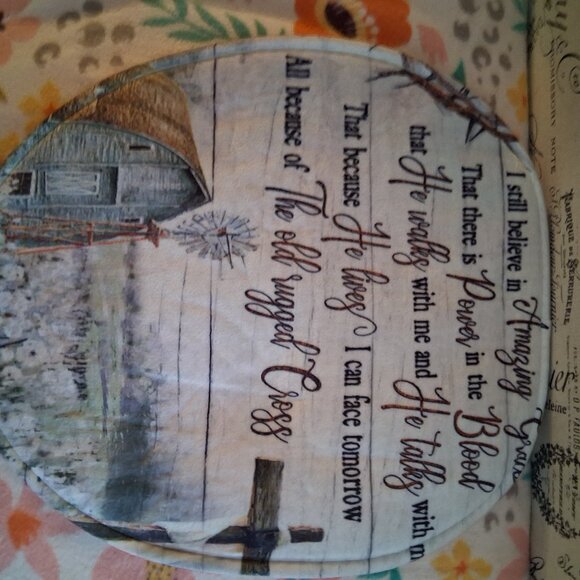 I still believe in Amazing Grace
That there is Power in the Blood
that He walks with me and He talks with m
That because He lives I can face tomorrow
All because of The old rugged Cross
FABRIQUE DE SERRURERIE